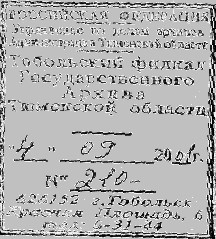 РОССИЙСКАЯ ФЕДЕРАЦИЯ
Управление по делам архивов
Администрации Тюменской области
Тобольский филиал
Государственного
Архива
Тюменской области
4 " 09 200 г.
№ 210-
626152 г.Тобольск
Красная Площадь, 6
6-31-44